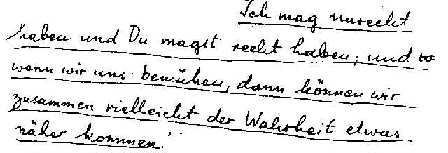 Ich mag unrecht
haben und Du magst recht haben; und
wenn wir uns bemühen, dann können wir
zusammen vielleicht der Wahrheit etwas
näher kommen!